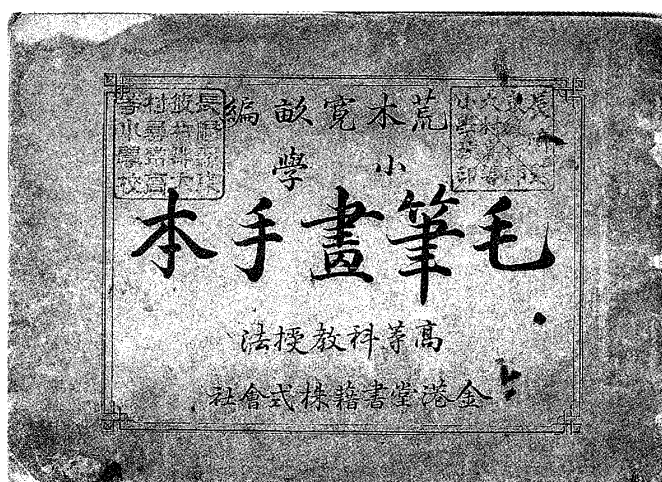 荒木寛畝編
小學
毛筆畫手本
高等科教授法
金港堂書籍株式會社